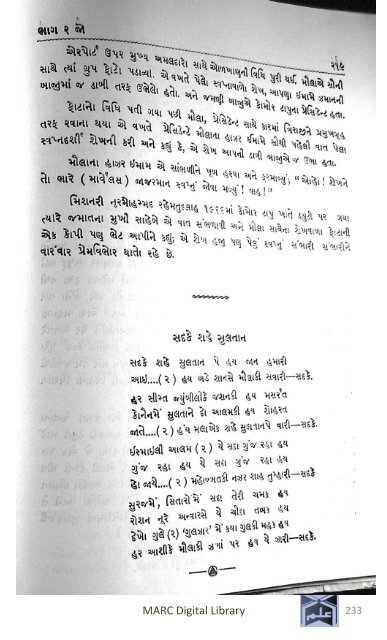 ભાગ ૨ જો
૨૧૯
એરપોર્ટ ઉપર મુખ્ય અમલદારો સાથે ઓળખાણની વિધિ પુરી થઈ. મૌલાએ સૌની
સાથે ત્યાં ગ્રુપ ફોટો પડાવ્યા. એ વખતે પેલો સ્વપ્નાવાળો શેખ, આપણા ઈમામે ઝમાનની
બાજુમાં જ ડાબી તરફ ઉભેલો હતો. અને જમણી બાજુએ કોમોર ટાપુના પ્રેસિડેન્ટ હતા.
ફોટાનો વિધિ પતી ગયા પછી મૌલા, પ્રેસિડેન્ટ સાથે કારમાં બિરાજીને પ્રમુખગૃહ
તરફ રવાના થયા એ વખતે પ્રેસિડેન્ટે મૌલાના હાઝર ઈમામ સાથે પહેલી વાત પેલા
સ્વપ્નદર્શી શેખની કરી અને કહ્યું કે, એ શેખ આપની ડાબી બાજુએ જ ઉભા હતા.
મૌલાના હાઝર ઈમામ એ સાંભળીને ખૂબ હસ્યા અને ફરમાવ્યું; "ઓહો! શેખને
તો ભારે (માર્વેલસ) જાજરમાન સ્વપ્નું જોવા મળ્યું! વાહ!"
મિશનરી નૂરમોહમ્મદ રહેમતુલ્લાહ ૧૯૬૬માં કોમોર ટાપુ ખાતે ડયુટી પર ગયા
ત્યારે જમાતના મુખી સાહેબે એ વાત સંભળાવી અને મૌલા સાથેના શેખવાળા ફોટાની
એક કોપી પણ ભેટ આપીને કહ્યું; એ શેખ હજી પણ પેલું સ્વપ્નું સંભારી સંભારીને
વારંવાર પ્રેમવિભોર થાતો રહે છે.
સદકે શાહે સુલતાન
સદકે શાહે સુલતાન પે હય જાન હમારી
આઈ....(૨) હય બડે શાનસે મૌલાકી સવારી—સદકે.
હર સીસ્ત જ્યુબીલીકે જશનકી હય મસર્રત
કોનેનમેં સુલતાને દો આલમકી હય શોહરત
જાતે....(૨) હંય મલાએક શાહે સુલતાનપે વારી—સદકે.
ઈસ્માઈલી આલમ (૨) યે સદા ગુંજ રહા હય
ગુંજ રહા હય યે સદા ગુંજ રહા હય
હો જાયે....(૨) મહોબ્બતકી નઝર શાહ તુમ્હારી—સદકે
સુરજમેં, સિતારોંમેં સદા તેરી ચમક હય
રોશન નૂરે અન્વારસે યે ચૌદા તબક હય
દેખો ગુલે (૨) 'ગુલઝાર' મેં કયા ગુલકી મહક હય
હર આશીકે મૌલાકી ઝબાં પર હય યે જારી—સદકે.
MARC Digital Library
233